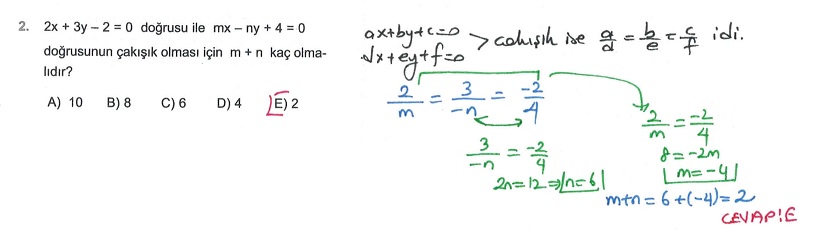 2. 2x + 3y – 2 = 0 doğrusu ile mx – ny + 4 = 0
doğrusunun çakışık olması için m + n kaç olma-
lıdır?
A) 10 B) 8 C) 6 D) 4 E) 2
ax+by+c=0
dx+ey+f=0 > çakışık ise a/d = b/e = c/f idi.
2/m = 3/-n = -2/4
3/-n = -2/4
2n=12 ⇒ n=6
2/m = -2/4
8=-2m
m=-4
m+n = 6+(-4)=2
CEVAP:E